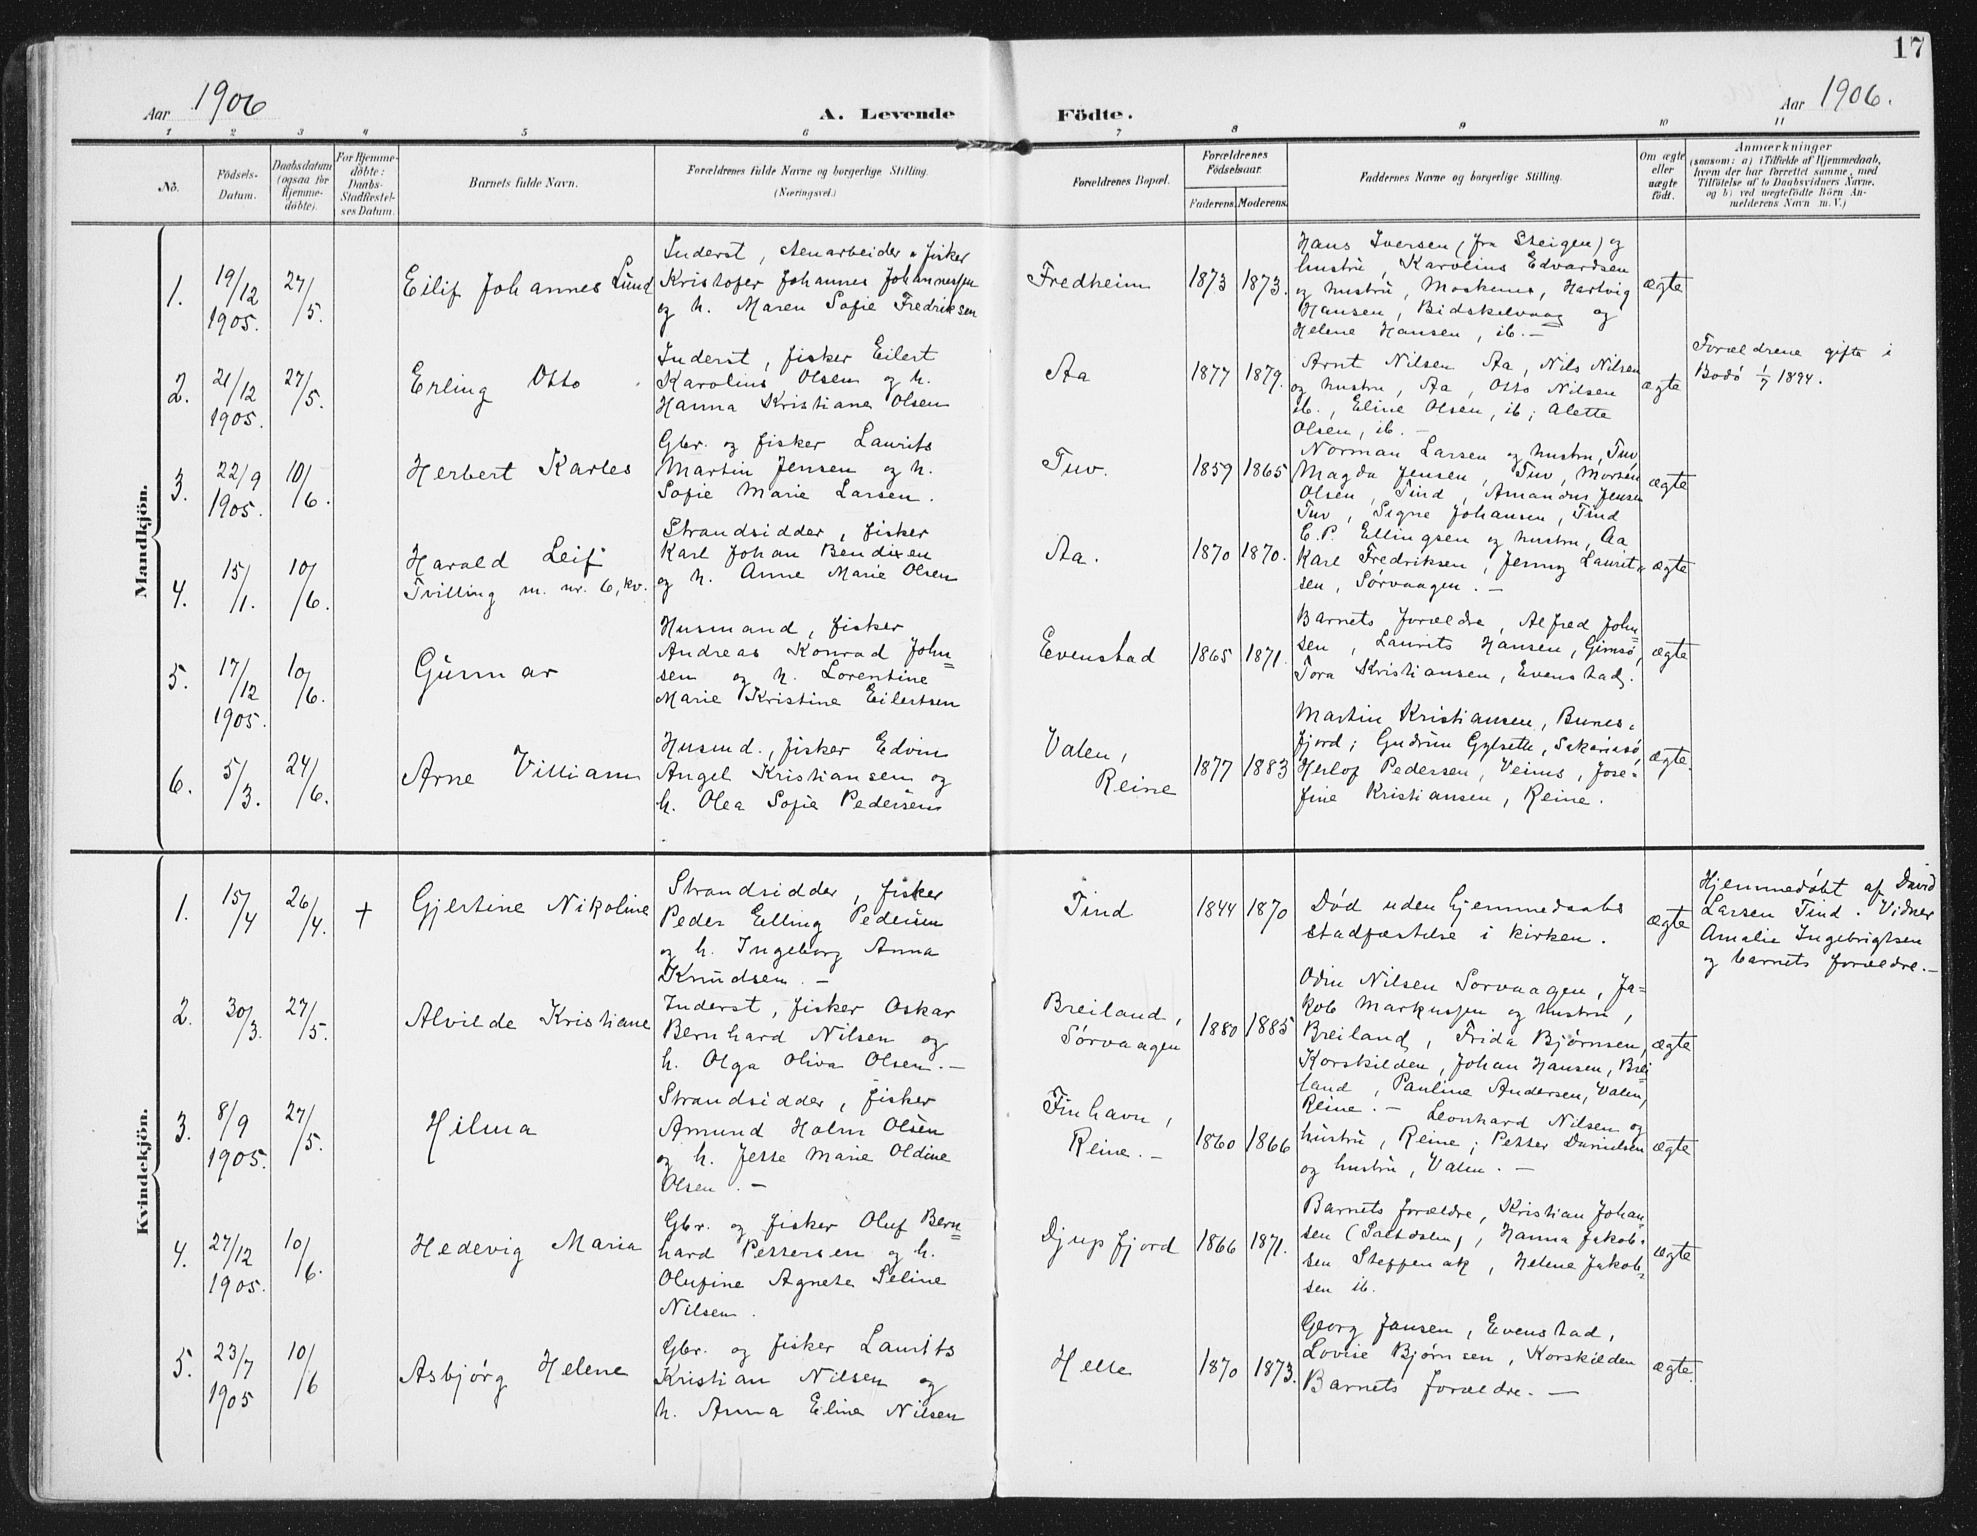 17
Aar 1906
A. Levende Födte.
Aar 1906.
1 2 3 4 5 6 7 8 9 10 11
No.
Födsels-
Datum.
Daabsdatum
(ogsaa for
Hjemme-
döbte).
For Hjemme-
döbte:
Daabs-
Stadfæstel-
ses Datum.
Barnets fulde Navn.
Forældrenes fulde Navne og borgerlige Stilling.
(Næringsvei.)
Forældrenes Bopæl.
Forældrenes
Födselsaar.
Faderens. Moderens.
Faddernes Navne og borgerlige Stilling.
Om ægte
eller
uægte
født.
Anmærkninger
(saasom: a) i Tilfælde af Hjemmedaab,
hvem der har forrettet samme, med
Tilföielse af to Daabsvidners Navne,
og b) ved uægtefödte Börn An-
melderens Navn m. V.)
Mandkjön.
1.
19/12
1905.
27/5.
Eilif Johannes Lund
Inderst, stenarbeider & fisker
Kristofer Johannes Johannessen
og h. Maren Sofie Fredriksen
Fredheim
1873 1873.
Hans Iversen (fra Steigen) og
hustru, Karolius Edvardsen
og hustru, Moskenes, Hartvig
Hansen, Bidskelvaag og
Helene Hansen, ib. –
ægte
2.
21/12
1905.
27/5.
Erling Otto
Inderst, fisker Eilert
Karolius Olsen og h.
Hanna Kristiane Olsen
Aa
1877 1879.
Arnt Nilsen Aa, Nils Nilsen
og hustru, Aa, Otto Nilsen
ib., Eline Olsen, ib; Alette
Olsen, ib. –
ægte
Forældrene gifte i
Bodø 1/7 1894.
3.
22/9
1905.
10/6.
Herbert Karles
Gbr. og fisker Laurits
Martin Jensen og h.
Sofie Marie Larsen.
Tuv.
1859 1865
Norman Larsen og hustru, Tuv
Magda Jensen, Tuv, Morten
Olsen, Tind, Amandus Jensen
Tuv, Signe Johansen, Tind
ægte
4.
15/1.
10/6.
Harald Leif
Tvilling m. nr. 6, kv.
Strandsidder, fisker
Karl Johan Bendixen
og h. Anne Marie Olsen
Aa.
1870 1870.
E. P. Ellingsen og hustru, Aa
Karl Fredriksen, Jenny Laurit-
sen, Sørvaagen. –
ægte
5.
17/12
1905.
10/6.
Gunnar
Husmand, fisker
Andreas Konrad John=
sen og h. Lorentine
Marie Kristine Eilertsen
Evenstad
1865 1871.
Barnets forældre, Alfred John=
sen, Laurits Hansen, Gimsø,
Tora Kristiansen, Evenstad.
ægte
6.
5/3.
24/6.
Arne Villiam
Husmd., fisker Edvin
Angel Kristiansen og
h. Olea Sofie Pedersen
Valen,
Reine
1877 1883
Martin Kristiansen, Bunes-
fjord; Gudrun Gylseth, Sakariasø,
Herlof Pedersen, Veines, Jose-
fine Kristiansen, Reine.
ægte.
Kvindekjön.
1.
15/4
26/4.
+
Gjertine Nikoline
Strandsidder, fisker
Peder Elling Pedersen
og h. Ingeborg Anna
Knudsen. –
Tind
1844 1870
Død uden hjemmedaabs
stadfæstelse i kirken.
ægte
Hjemmedøbt af David
Larsen Tind. Vidner
Amalie Ingebrigtsen
og barnets forældre. –
2.
30/3.
27/5.
Alvilde Kristiane
Inderst, fisker Oskar
Bernhard Nilsen og
h. Olga Oliva Olsen. –
Breiland,
Sørvaagen
1880 1885
Odin Nilsen Sørvaagen, Ja-
kob Markussen og hustru,
Breiland, Frida Bjørnsen,
Korskilden, Johan Hansen, Brei
land, Pauline Andersen, Valen,
Reine. –
ægte
3.
8/9
1905.
27/5.
Hilma
Strandsidder, fisker
Amund Holm Olsen
og h. Jette Marie Oldine
Olsen. –
Finhavn,
Reine. –
1860 1866
Leonhard Nilsen og
hustru, Reine; Petter Danielsen
og hustru, Valen. –
ægte
4.
27/12
1905.
10/6.
Hedevig Maria
Gbr. og fisker Oluf Bern=
hard Pettersen og h.
Olufine Agnete Seline
Nilsen.
Djupfjord
1866 1871.
Barnets forældre, Kristian Johan-
sen (Saltdalen), Hanna Jakob-
sen Steffenak, Helene Jakob-
sen ib.
ægte
5.
23/7
1905
10/6
Asbjørg Helene
Gbr. og fisker Laurits
Kristian Nilsen og
h. Anna Eline Nilsen
Helle
1870 1873.
Georg Jansen, Evenstad,
Lovise Bjørnsen, Korskilden
Barnets forældre. –
ægte.